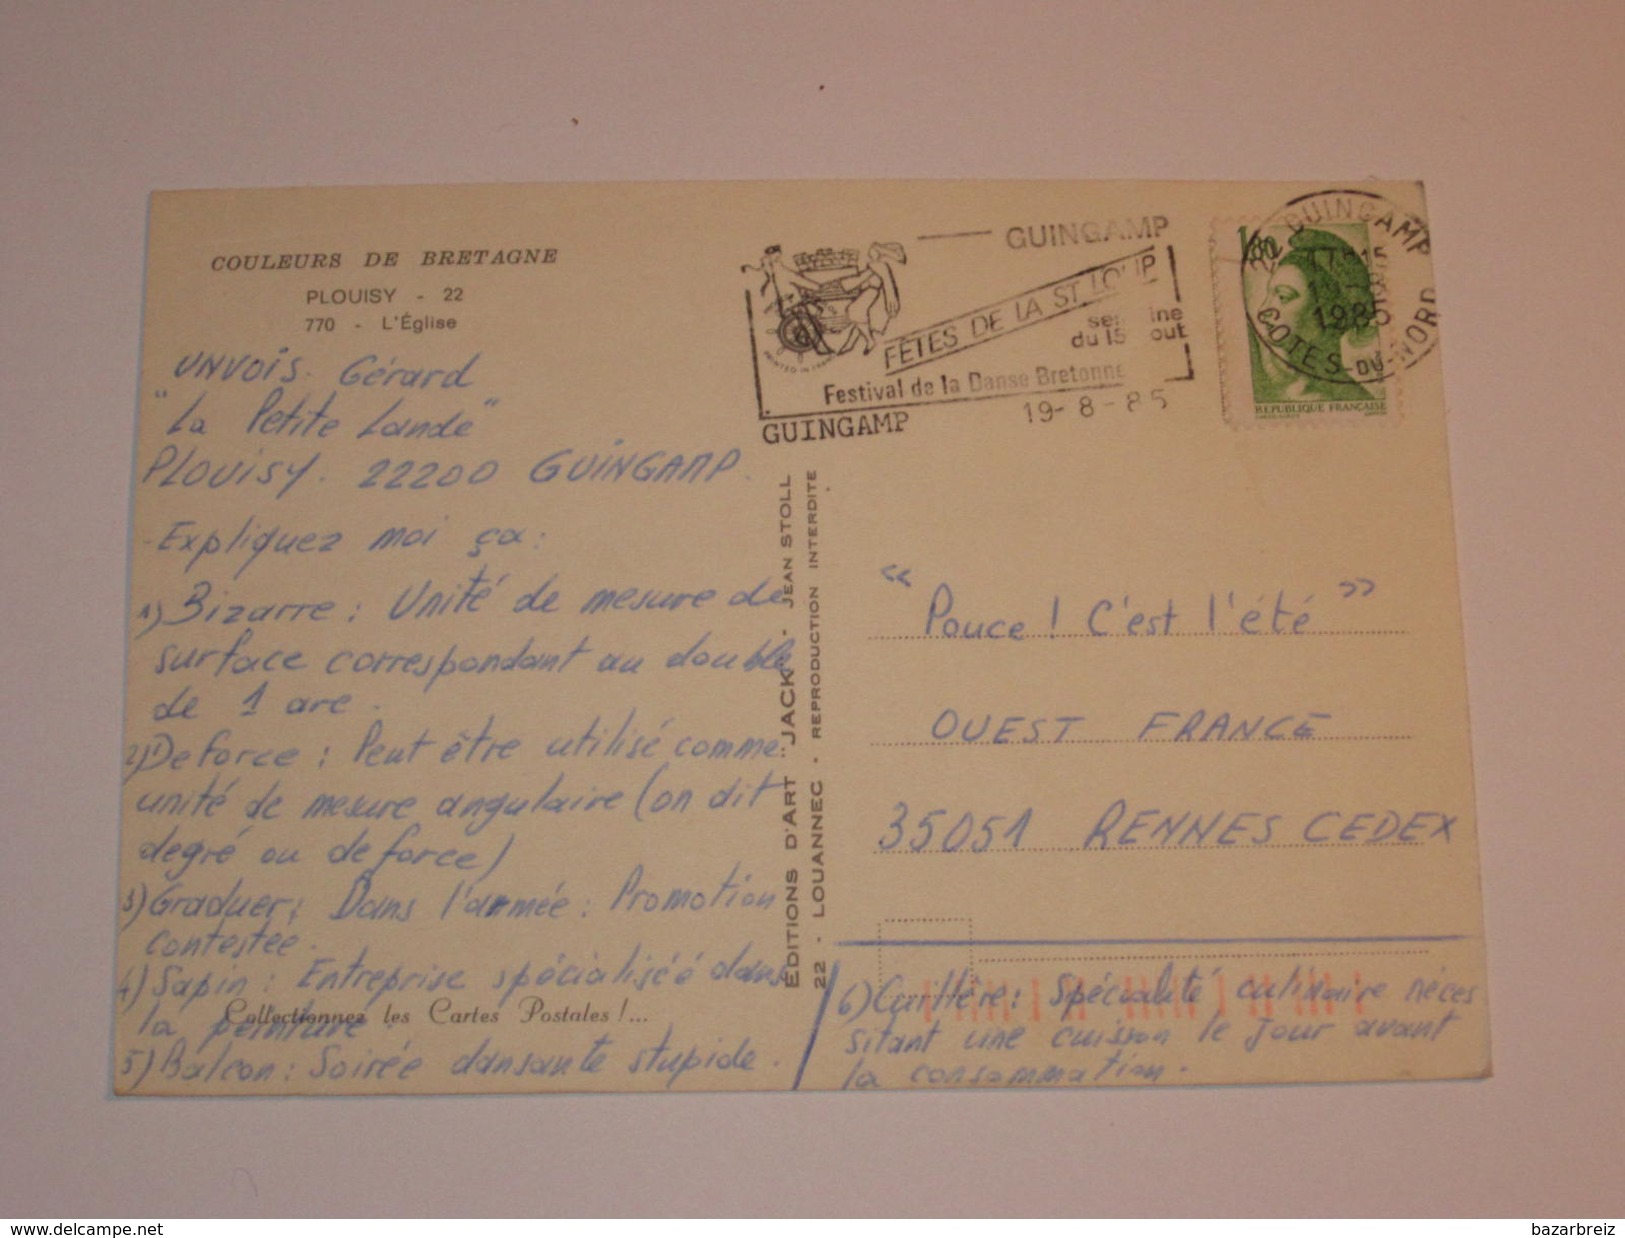 COULEURS DE BRETAGNE
PLOUISY - 22
770 - L'Église
UNVOIS. Gérard
"La Petite Lande"
PLOUISY. 22200 GUINGAMP.
Expliquez moi ça :
1) Bizarre : Unité de mesure de
surface correspondant au double
de 1 are.
2) De force : Peut être utilisé comme
unité de mesure angulaire (on dit
degré ou de force)
3) Graduer : Dans l'armée : Promotion
contestée.
4) Sapin : Entreprise spécialisée dans
la peinture.
Collectionnez les Cartes Postales !...
5) Balcon : Soirée dansante stupide.
ÉDITIONS D'ART "JACK" - JEAN STOLL
22 - LOUANNEC - REPRODUCTION INTERDITE
GUINGAMP
FÊTES DE LA ST LOUP
du 15 out
Festival de la Danse Bretonne
GUINGAMP 19-8-85
1,80
22 GUINGAMP
1985
COTES-DU-NORD
REPUBLIQUE FRANÇAISE
"Pouce ! C'est l'été"
OUEST FRANCE
35051 RENNES CEDEX
6) : Spécialité culinaire néces
sitant une cuisson le jour avant
la consommation.
delcampe.net
bazarbreiz